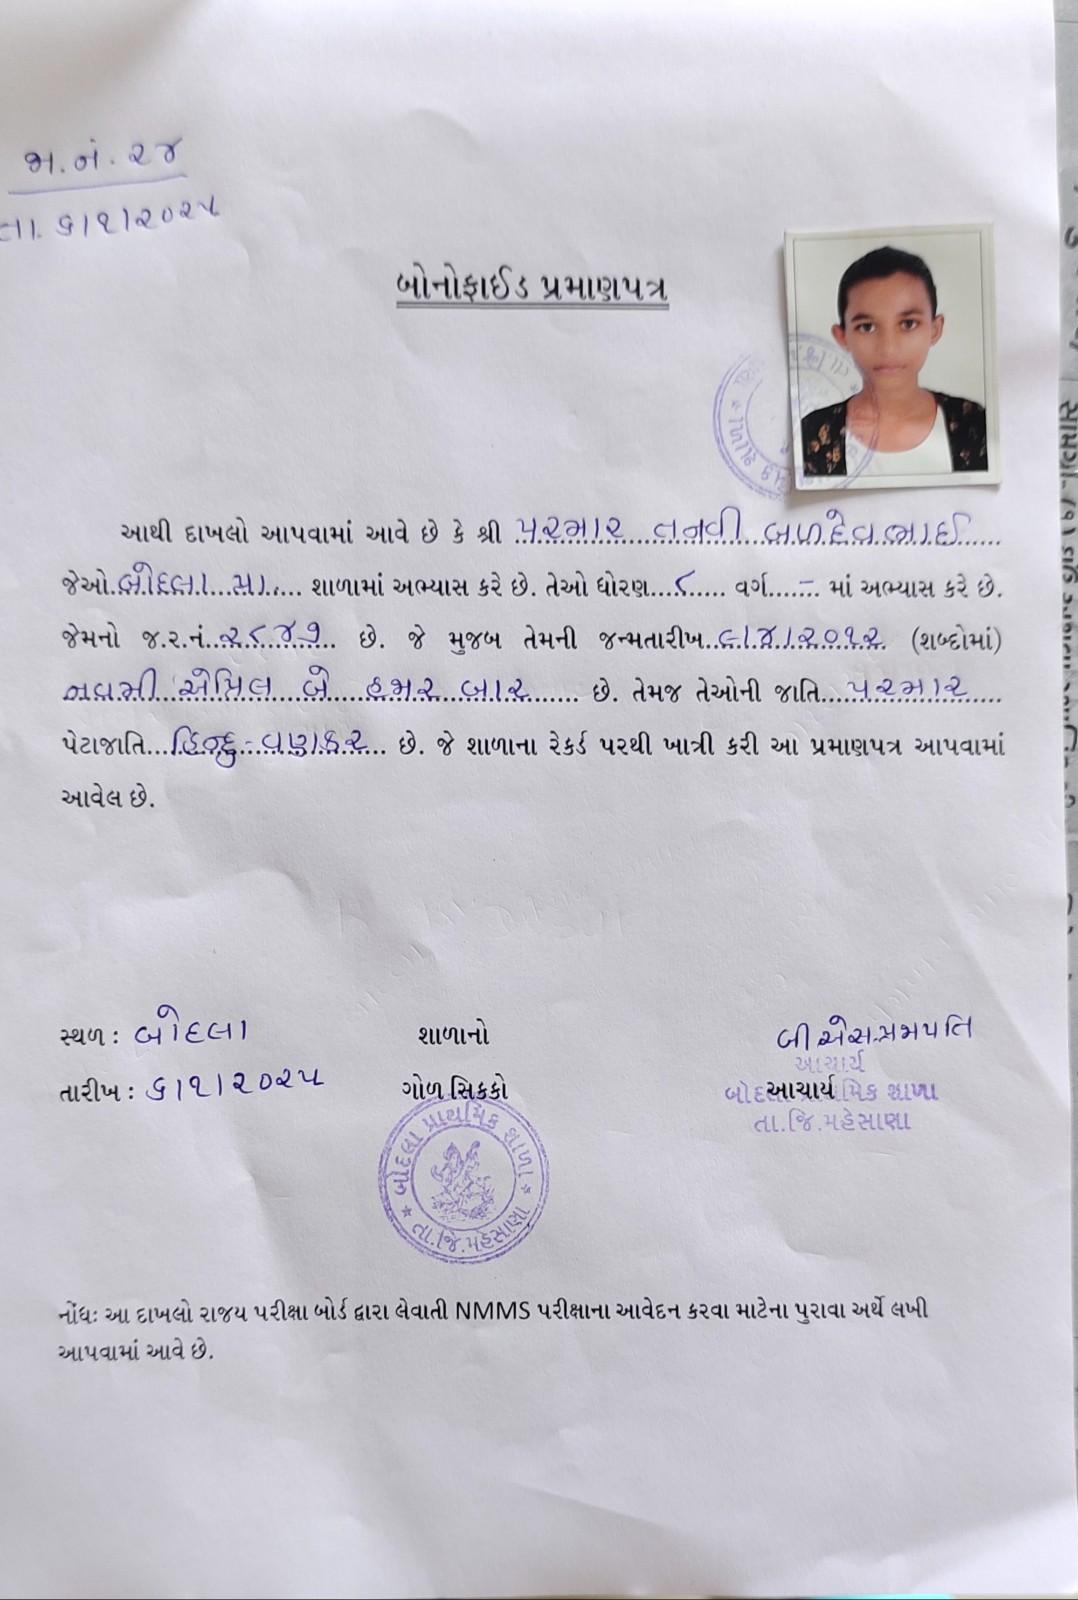 જા.નં. ૨૪
તા. ૬/૧/૨૦૨૫
બોનોફાઈડ પ્રમાણપત્ર
આથી દાખલો આપવામાં આવે છે કે શ્રી પરમાર તનવી બળદેવભાઈ
જેઓ બોદલા પ્રા. શાળામાં અભ્યાસ કરે છે. તેઓ ધોરણ ૮ વર્ગ - માં અભ્યાસ કરે છે.
જેમનો જ.ર.નં. ૨૮૪૭ છે. જે મુજબ તેમની જન્મતારીખ ૯/૪/૨૦૧૨ (શબ્દોમાં)
નવમી એપ્રિલ બે હજાર બાર છે. તેમજ તેઓની જાતિ પરમાર
પેટાજાતિ હિન્દુ - વણકર છે. જે શાળાના રેકર્ડ પરથી ખાત્રી કરી આ પ્રમાણપત્ર આપવામાં
આવેલ છે.
સ્થળ : બોદલા
તારીખ : ૬/૧/૨૦૨૫
શાળાનો
ગોળ સિકકો
બોદલા પ્રાથમિક શાળા
તા.જિ.મહેસાણા
બી એસ. પ્રજાપતિ
આચાર્ય
આચાર્ય
બોદલા પ્રાથમિક શાળા
તા.જિ.મહેસાણા
નોંધઃ આ દાખલો રાજય પરીક્ષા બોર્ડ દ્વારા લેવાતી NMMS પરીક્ષાના આવેદન કરવા માટેના પુરાવા અર્થે લખી
આપવામાં આવે છે.